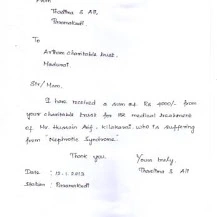 From
Thasitha S Ali,
Paramakudi.
To
Artham charitable trust,
Madurai.
Sir/ Mam,
I have received a sum of Rs 4000/- from
your charitable trust for the medical treatment
of Mr. Hussain Asif, kilakarai who is suffering
from "Nephrotic Syndrome".
Thank you.
Yours truly,
Thasitha S Ali
Date : 12.1.2013
Station : Paramakudi